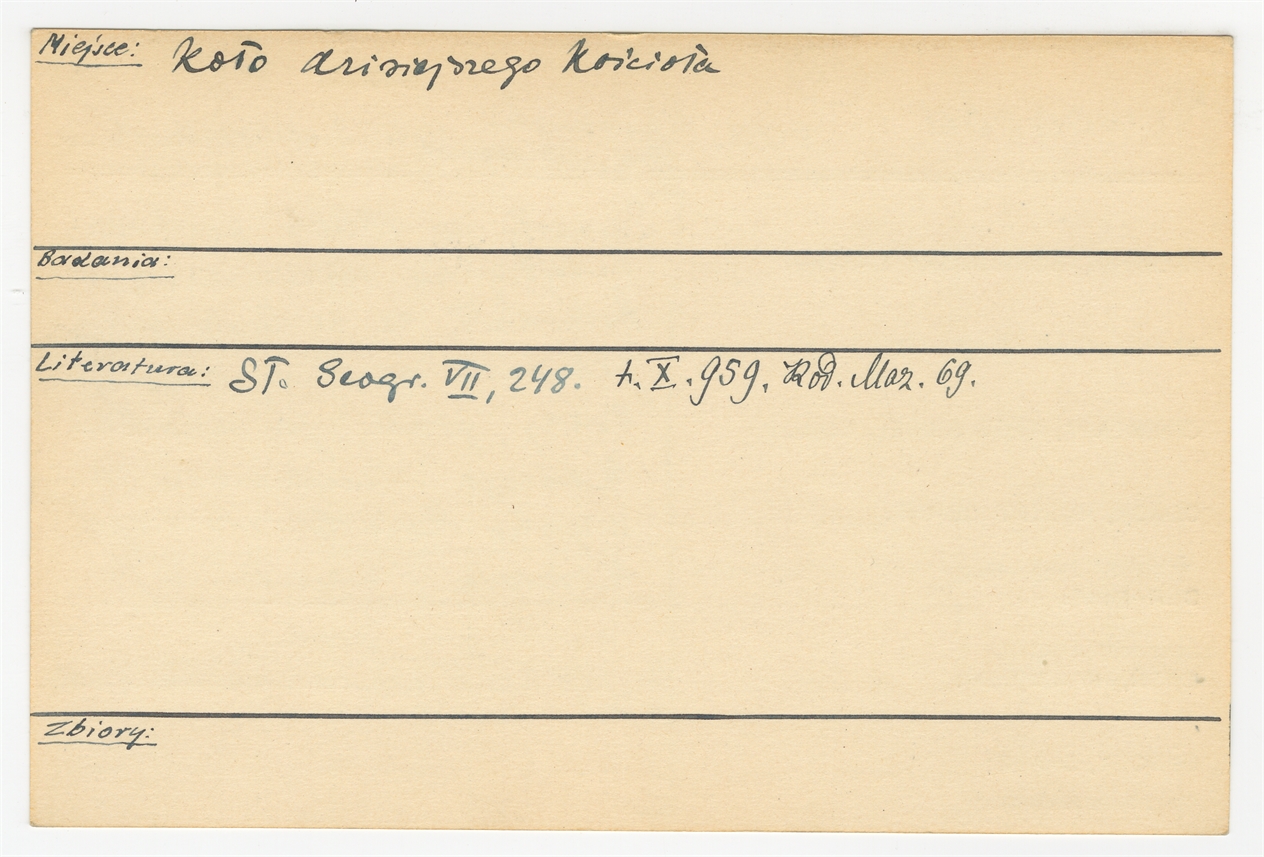 Miejsce: Koło dzisiejszego Kościoła
Badania:
Literatura: Sł. Geogr. VII, 248. t. X. 959. Kod. Maz. 69.
Zbiory: